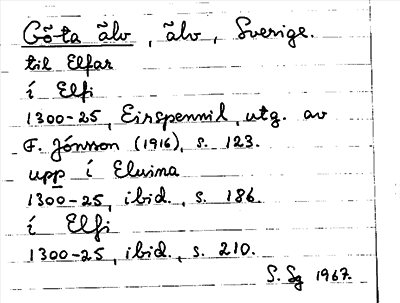 Göta älv, älv, Sverige.
til Elfar
í Elfi
1300-25, Eirspennil, utg. av
F. Jónsson (1916), s. 123.
upp í Eluina
1300-25, ibid., s. 186.
í Elfi
1300-25, ibid., s. 210.
S. Sg 1967.